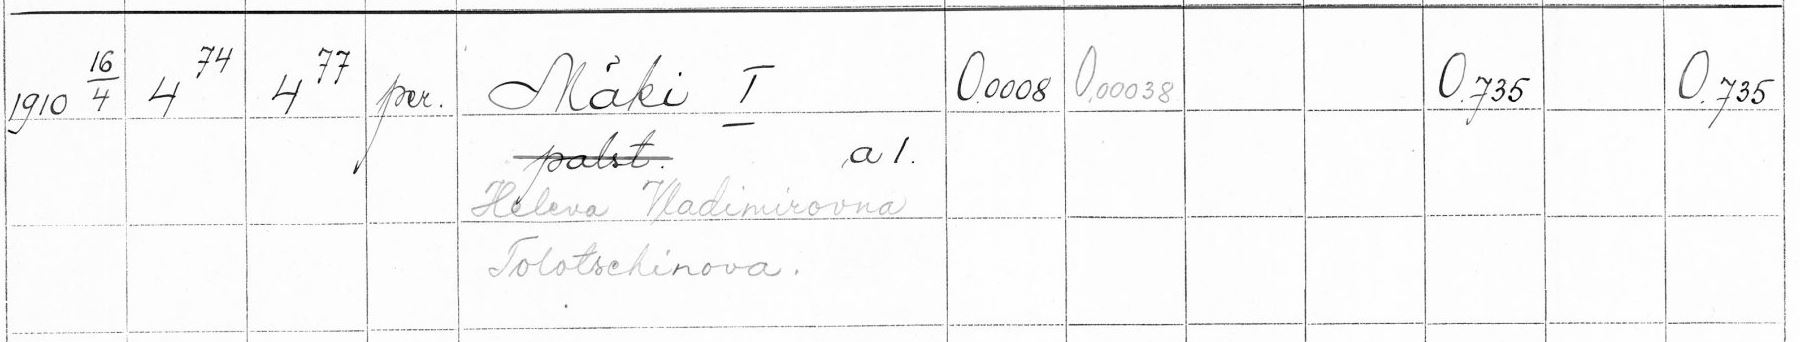 1910 16/4 4 74 4 77 per. Mäki I 0.0008 0.00038 0.735 0.735
palst. a 1.
Helena Vladimirovna
Tolotschinova.